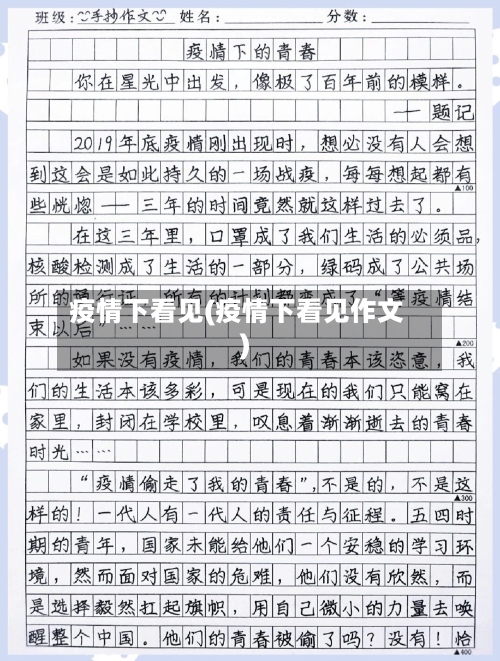 班级:手抄作文 姓名: 分数:
疫情下的青春
你在星光中出发,像极了百年前的模样。
— 题记
2019年底疫情刚出现时,想必没有人会想
到这会是如此持久的一场战疫,每每想起都有
▲100
些恍惚 — 三年的时间竟然就这样过去了。
在这三年里,口罩成了我们生活的必须品,
核酸检测成了生活的一部分,绿码成了公共场
所的通行证,所有的计划都变成了“等疫情结
疫情下看见(疫情下看见作文
束以后”……
▲200
)
如果没有疫情,我们的青春本该恣意,我
们的生活本该多彩,可是现在的我们只能窝在
家里,封闭在学校里,叹息着渐渐逝去的青春
时光……
“疫情偷走了我的青春”,不是的,不是这
▲300
样的!一代人有一代人的责任与征程。五四时
期的青年,国家未能给他们一个安稳的学习环
境,然而面对国家的危难,他们没有欣然,而
是选择毅然扛起旗帜,用自己微小的力量去唤
醒整个中国。他们的青春被偷了吗?没有!恰
▲400